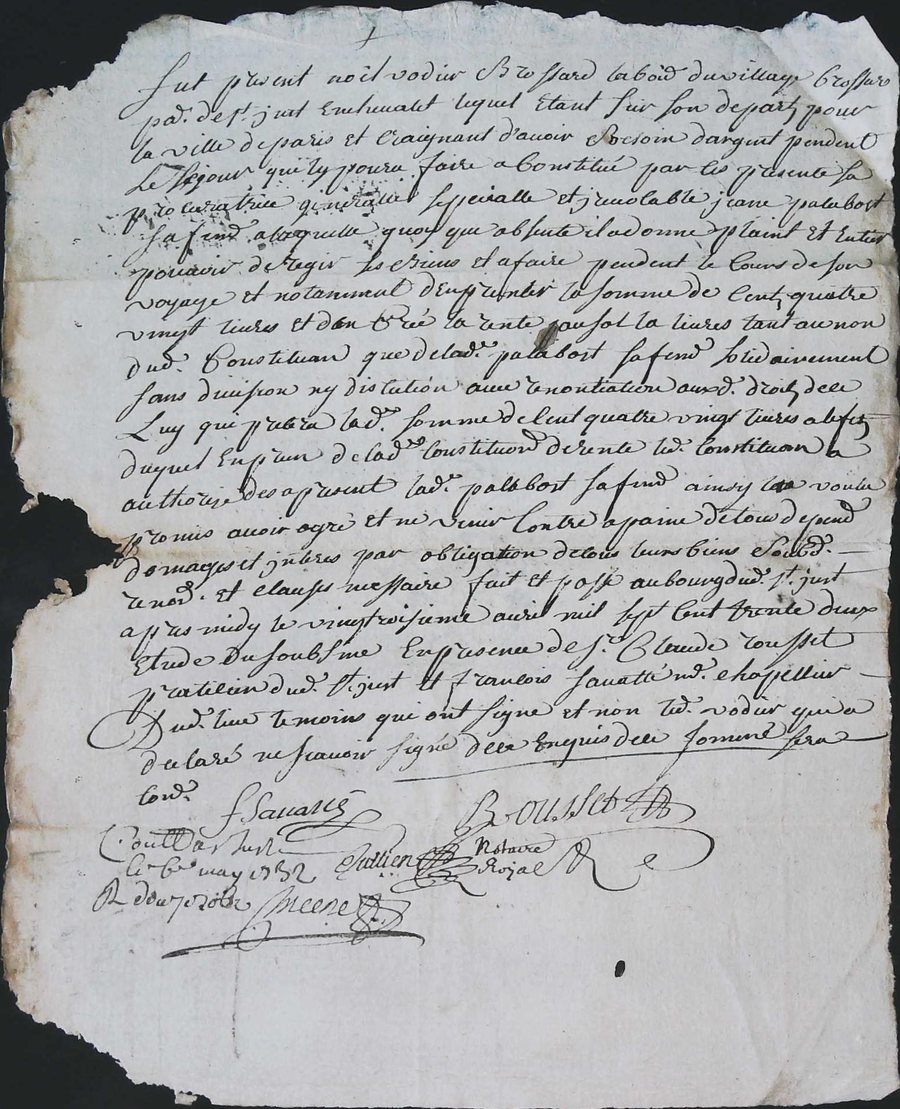 fut present noël vodier Brossard labor. du village brossard
par. de st. just Enchevalet lequel Etant sur son depart pour
la ville de paris et Craignant d'avoir Besoin dargent pendent
Le sejour quil y poura faire a Constitué par Ces presente sa
procuratrice generalle speciallé et jrevocable jeane palabost
sa fem. a laquelle quoy que absente il a donne plaint et Entier
pouvoir de regir ses Biens et afaire pendent le Cours de son
voyage et notamment d'Enprunter la somme de Cent quatre
vingt livres et d'en Créé la rente au sol la livres tant au nom
dud. Constituan que de lad. palabost sa fem. solidairement
sans division ny distution avec renontiation auxd. droits de
Luy que pretra lad. somme de Cent quatre vingt livres a lefet
duquel Enprun de lad. Constitution de rente led. Constituan a
authorizé des apresent lad. palabost sa fem. ainsy voulu
promis avoir agré et ne venir Contre apaine de tous depend
domages et jnteres par obligation de tous leurs biens Soub.
renon. et clauses nessaire fait et passé au bourg dud. st. just
apres midy le vingtroisieme avril mil sept Cent trente deux
Etude du soubsiné En presence de sr. Claude rousset
praticien dud. st. just et françois savatté md. chapellier
Dud. lieu temoins qui ont signé et non led. vodier qui a
declaré ne scavoir signé de ce Enquis
Con.
f Savatté
ROUSSET
le 6e may 1732
Jullien
Notaire
Royal